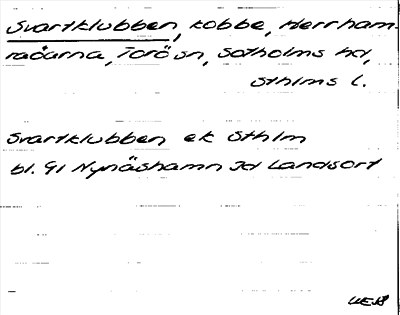 Svartklubben, kobbe, Herrham-
raðarna, Torö sn, Sotholms hd,
Sthlms l.
Svartklubben ek Sthlm
bl. 91 Nynäshamn Jd Landsort